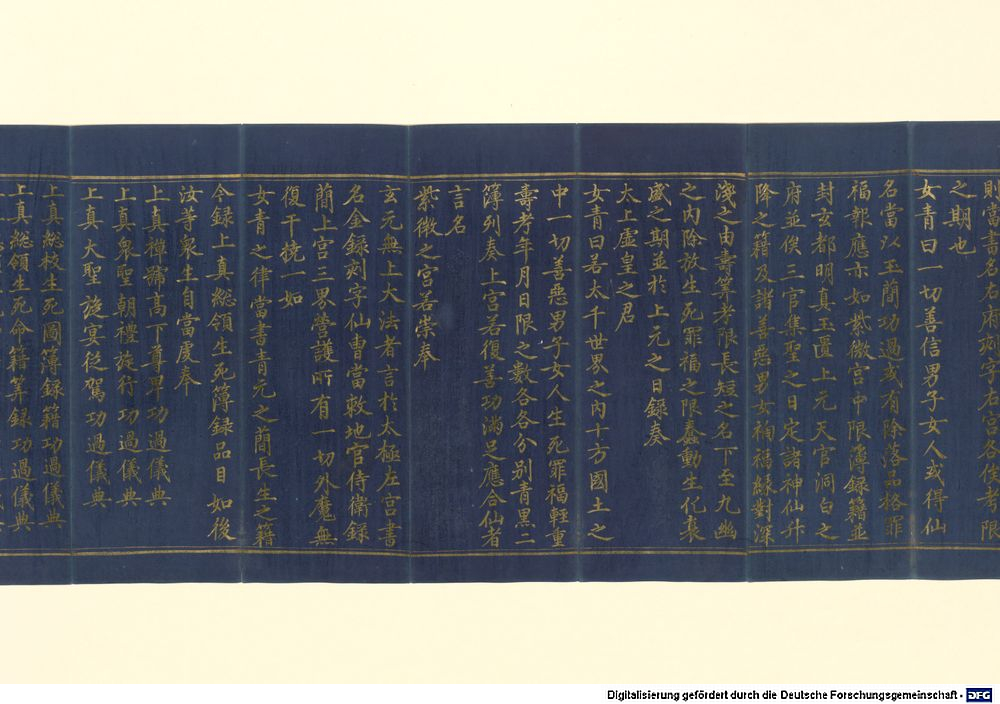 則當書名左府刻字右宮各使考限
之期也
女青曰一切善信男子女人或得仙
名當以玉蕳功過或有除落品格罪
福報應亦如紫微宮中限簿錄籍並
封玄都明真玉匱上元天官洞白之
府並俟三官集聖之日定諸神仙升
降之籍及諸善惡男女禍福緣對深
淺之由壽筭考限長短之名下至九幽
之內除放生死罪福之限蠢動生化衰
盛之期並於上元之日錄奏
太上虛皇之君
女青曰若太千世界之內十方國土之
中一切善惡男子女人生死罪福輕重
壽考年月日限之數各各分別青黑二
簿列奏上宮若復善功滿足應合仙者
言名
紫微之宮若崇奉
玄元無上大法者言於太極左宮書
名金錄刻字仙曹當敕地官侍衛錄
蕳上宮三界營護所有一切外魔無
復干撓一如
女青之律當書青元之蕳長生之籍
今錄上真総領生死簿錄品目如後
汝等衆生自當虔奉
上真禪號高下尊卑功過儀典
上真衆聖朝禮旋行功過儀典
上真大聖遊宴從駕功過儀典
上真総校生死圖簿錄籍功過儀典
上真総領生死命籍筭錄功過儀典
Digitalisierung gefördert durch die Deutsche Forschungsgemeinschaft - DFG